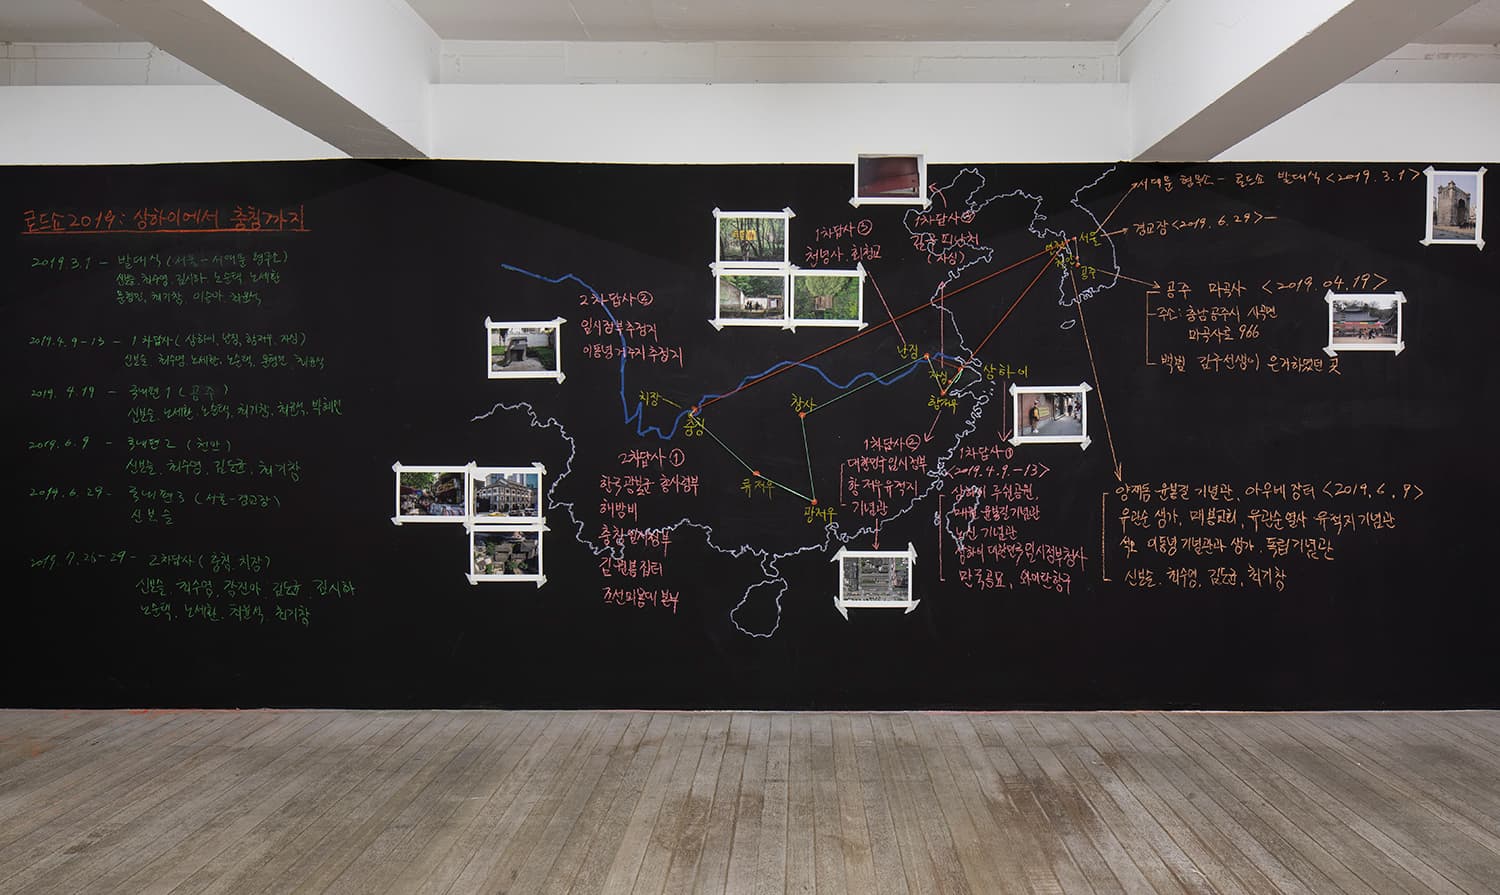 로드쇼2019: 상하이에서 충칭까지
2019.3.1 - 발대식 (서울-서대문 형무소)
신보슬, 최수영, 김시하, 노순택, 노세환
최기창, 이승아,
2019.4.9-13 - 1차답사 (상하이, 난징, 항저우, 자싱)
신보슬, 최수영, 노세환, 노순택,
2019. 4.19 - 국내편1 (공주)
신보슬, 노세환, 노순택, 최기창, 최윤석, 박혜민
2019.6.9 - 국내편2 (천안)
신보슬, 최수영, 김도균, 최기창
2019.6.29 - 국내편3 (서울-경교장)
신보슬
2019.7.26-29 - 2차답사 (충칭, 치장)
신보슬, 최수영, 김도균, 김시하
노순택, 노세환, 최윤석, 최기창
2차답사②
임시정부추정지
이동녕거주지 추정지
1차답사③
천녕사
1차답사④
김구 피난처
(자싱)
서울
천안
공주
난징
자싱
상하이
항저우
치장
충칭
창사
류저우
광저우
2차답사①
한국광복군 총사령부
해방비
충칭임시정부
김원봉집터
조선의용대 본부
1차답사②
대한민국임시정부
항저우유적지
기념관
1차답사①
<2019.4.9.-13>
상하이 루쉰공원,
매헌 윤봉길기념관
루쉰 기념관
상하이 대한민국임시정부청사
만국공묘, 와이탄항구
서대문 형무소 - 로드쇼 발대식 <2019.3.1>
경교장 <2019.6.29>
공주 마곡사 <2019.04.19>
주소: 충남공주시 사곡면
마곡사로 966
백범 김구선생이 은거하였던 곳
양재동 윤봉길 기념관, 아우내 장터 <2019.6.9>
유관순 생가, 매봉교회, 유관순열사 유적지 기념관
석오 이동녕 기념관과 생가, 독립기념관
신보슬, 최수영, 김도균, 최기창